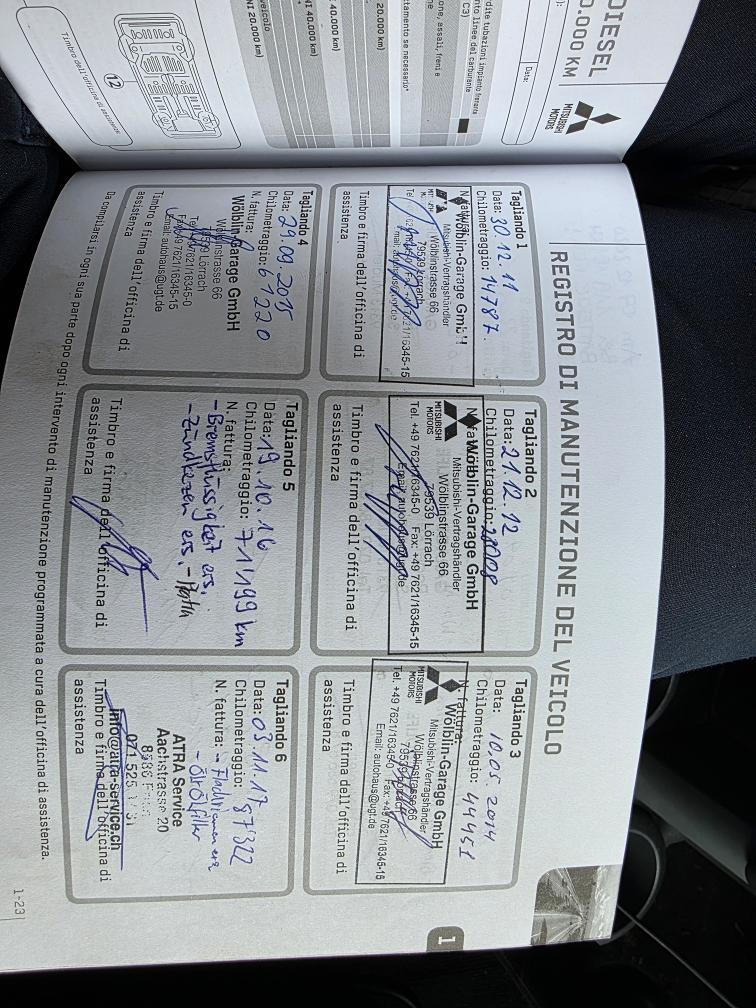 DIESEL
0.000 KM
MITSUBISHI
MOTORS
Data:
C3)
one, assali, freni e
ttamento se necessario*
20.000 km)
40.000 km)
NI 40.000 km)
veicolo
NI 20.000 km)
12
Timbro dell'officina di assistenza:
REGISTRO DI MANUTENZIONE DEL VEICOLO
Tagliando 1
Data: 30.12.11
Chilometraggio: 14787.
Wölblin-Garage GmbH
Mitsubishi-Vertragshändler
Wölblinstrasse 66
79539 Lörrach
Timbro e firma dell'officina di
assistenza
Tagliando 2
Data: 21.12.12
Chilometraggio:
Wölblin-Garage GmbH
Mitsubishi-Vertragshändler
MITSUBISHI
MOTORS
Wölblinstrasse 66
79539 Lörrach
Tel. +49 7621/16345-0 Fax: +49 7621/16345-15
Email: autohaus@ugt.de
Timbro e firma dell'officina di
assistenza
Tagliando 3
Data: 10.05.2014
Chilometraggio: 44451
N. fattura:
Wölblin-Garage GmbH
Mitsubishi-Vertragshändler
MITSUBISHI
MOTORS
Wölblinstrasse 66
79539 Lörrach
Tel. +49 7621/16345-0 Fax: +49 7621/16345-15
Email: autohaus@ugt.de
Timbro e firma dell'officina di
assistenza
Tagliando 4
Data: 29.09.2015
Chilometraggio: 61220
N. fattura:
Wölblin-Garage GmbH
Wölblinstrasse 66
79539 Lörrach
Tel. +49 7621/16345-0
Fax +49 7621/16345-15
Email: autohaus@ugt.de
Timbro e firma dell'officina di
assistenza
Tagliando 5
Data: 19.10.16
Chilometraggio: 71199 km
N. fattura:
- Bremsflüssigkeit ers.
- Zündkerzen ers.
Timbro e firma dell'officina di
assistenza
Tagliando 6
Data: 03.11.17
Chilometraggio: 87'322
N. fattura:
- Öl + Ölfilter
ATRA Service
Aachstrasse 20
info@atra-service.ch
Timbro e firma dell'officina di
assistenza
Da compilarsi in ogni sua parte dopo ogni intervento di manutenzione programmata a cura dell'officina di assistenza.
1
1-23